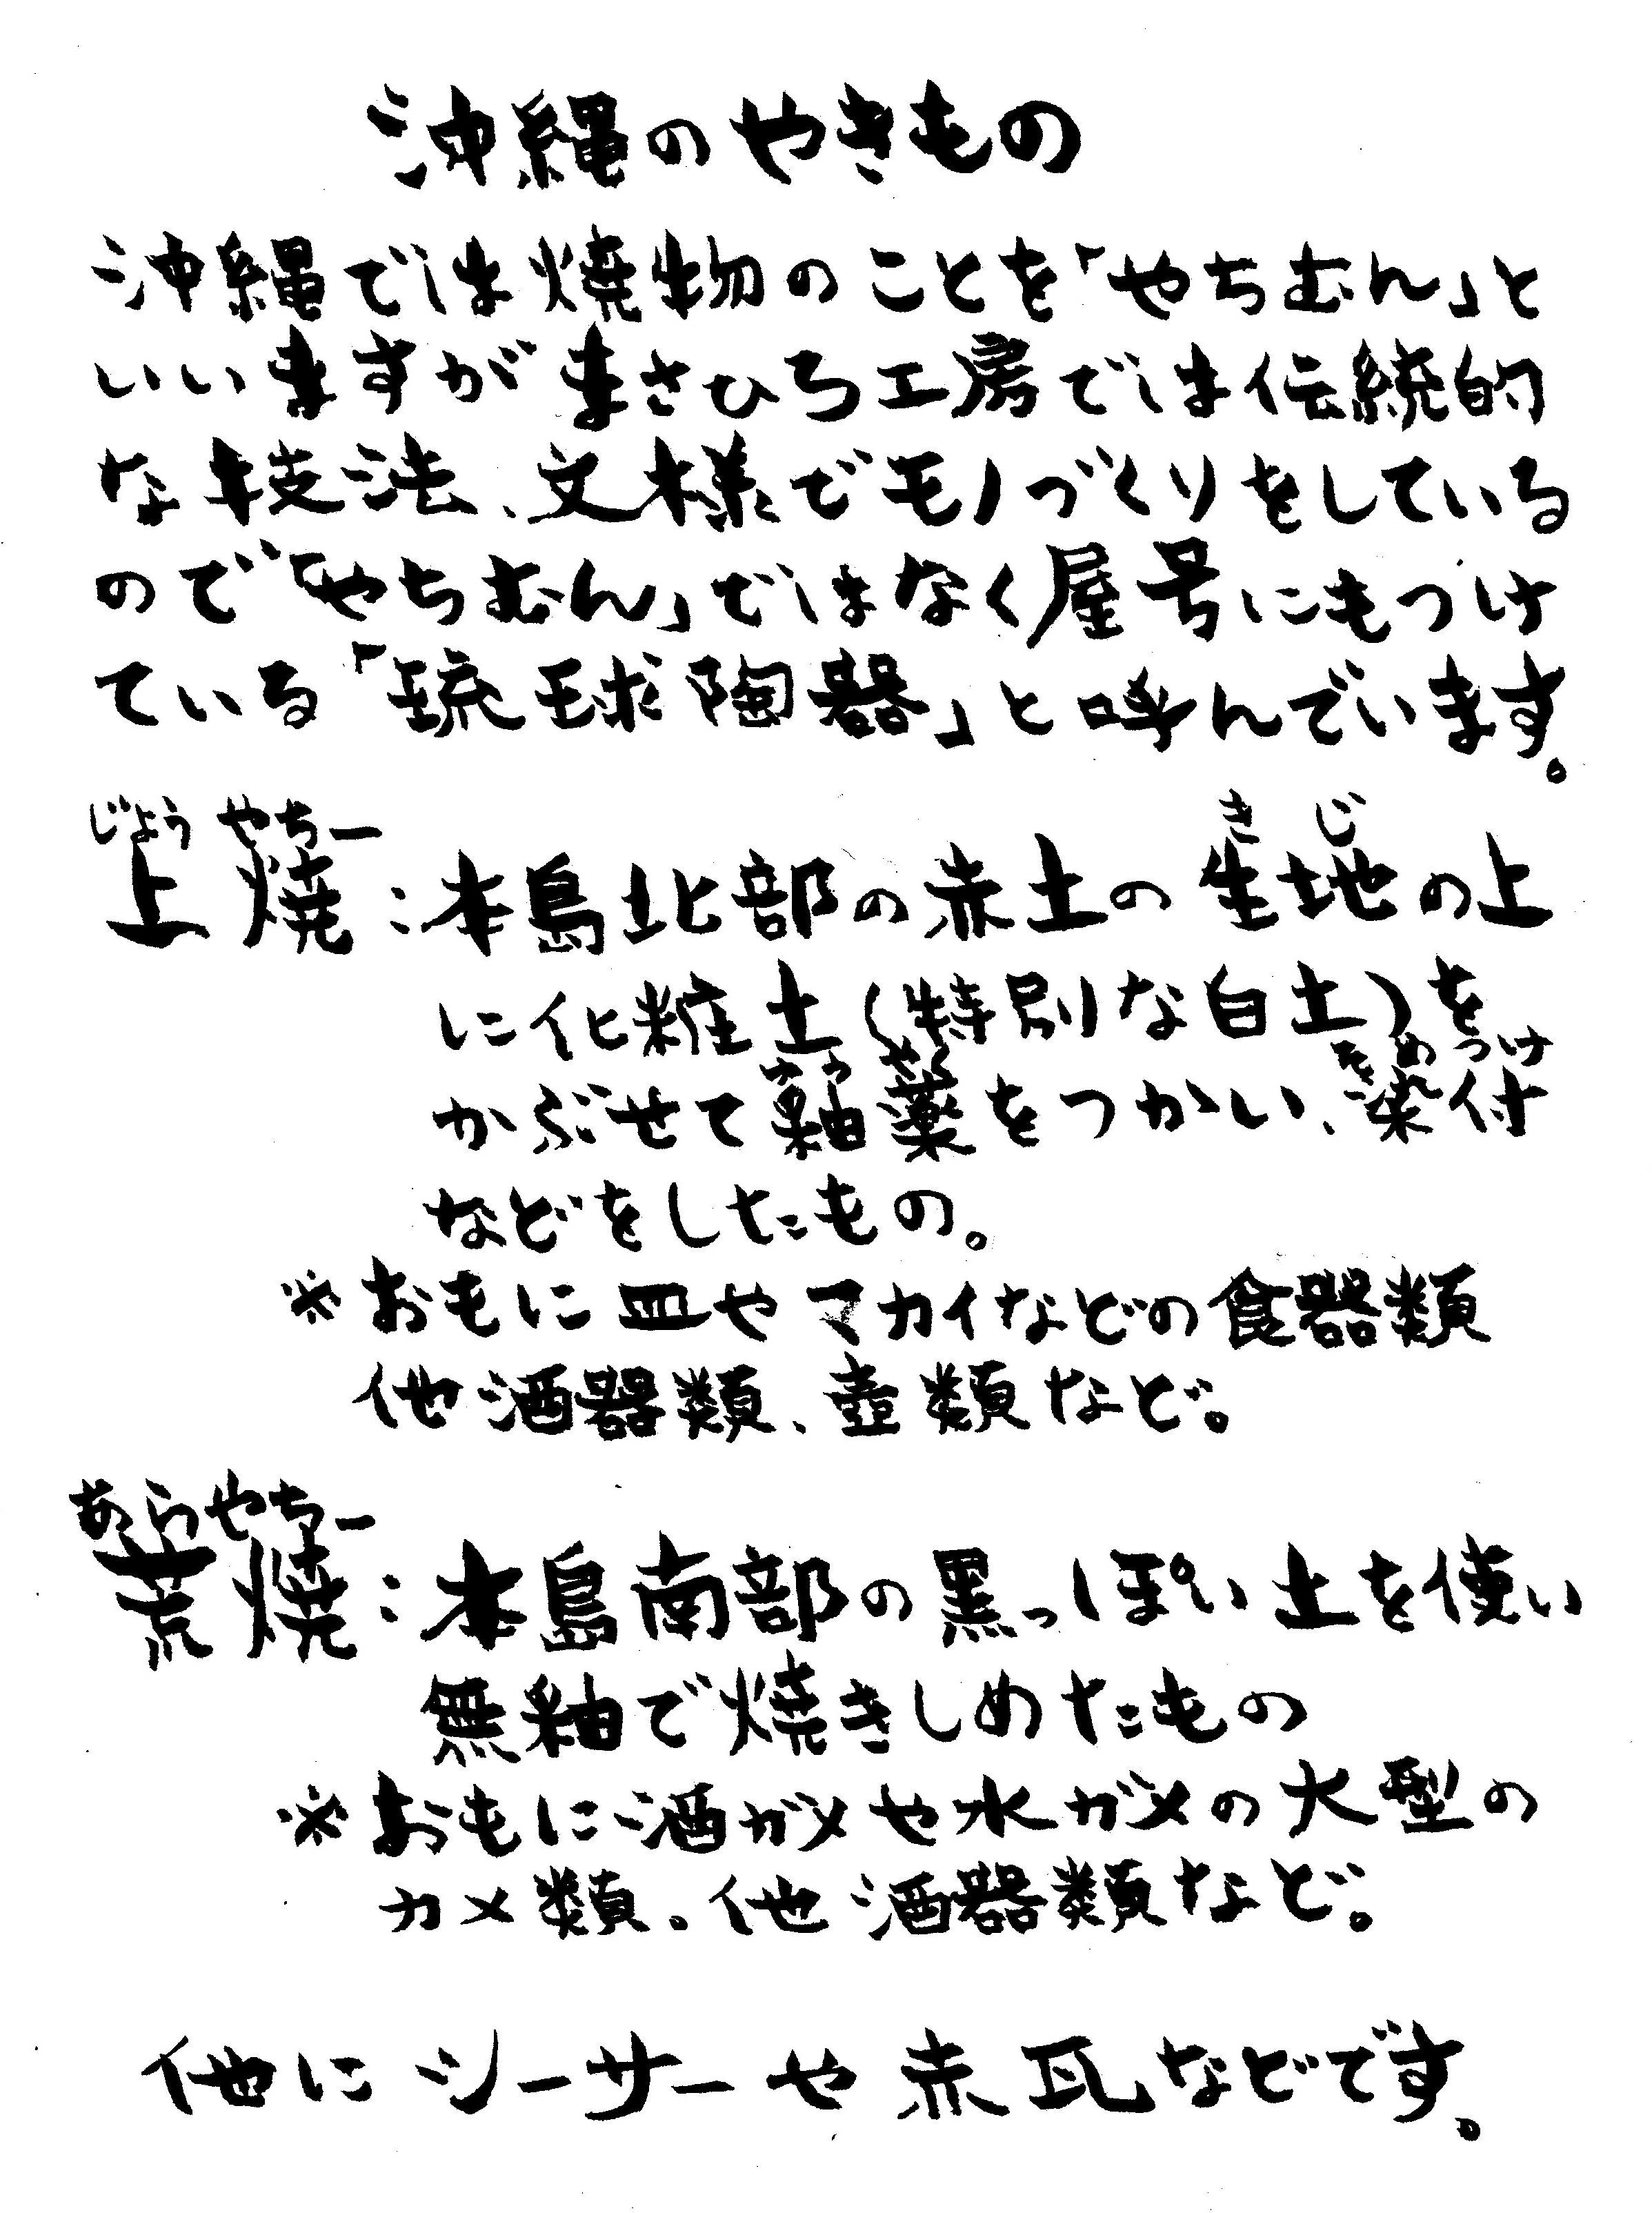 沖縄のやきもの
沖縄では焼物のことを「やちむん」と
いいますがまさひろ工房では伝統的
な技法、文様でモノづくりをしている
ので「やちむん」ではなく屋号にもつけ
ている「琉球陶器」と呼んでいます。
じょう やちー きじ
上焼:本島北部の赤土の生地の上
に化粧土(特別な白土)を
ゆう やく そめつけ
かぶせて釉薬をつかい、染付
などをしたもの。
※おもに皿やマカイなどの食器類
他酒器類、壺類など。
あらやちー
荒焼:本島南部の黒っぽい土を使い
無釉で焼きしめたもの
※おもに酒ガメや水ガメの大型の
カメ類。他酒器類など。
他にシーサーや赤瓦などです。